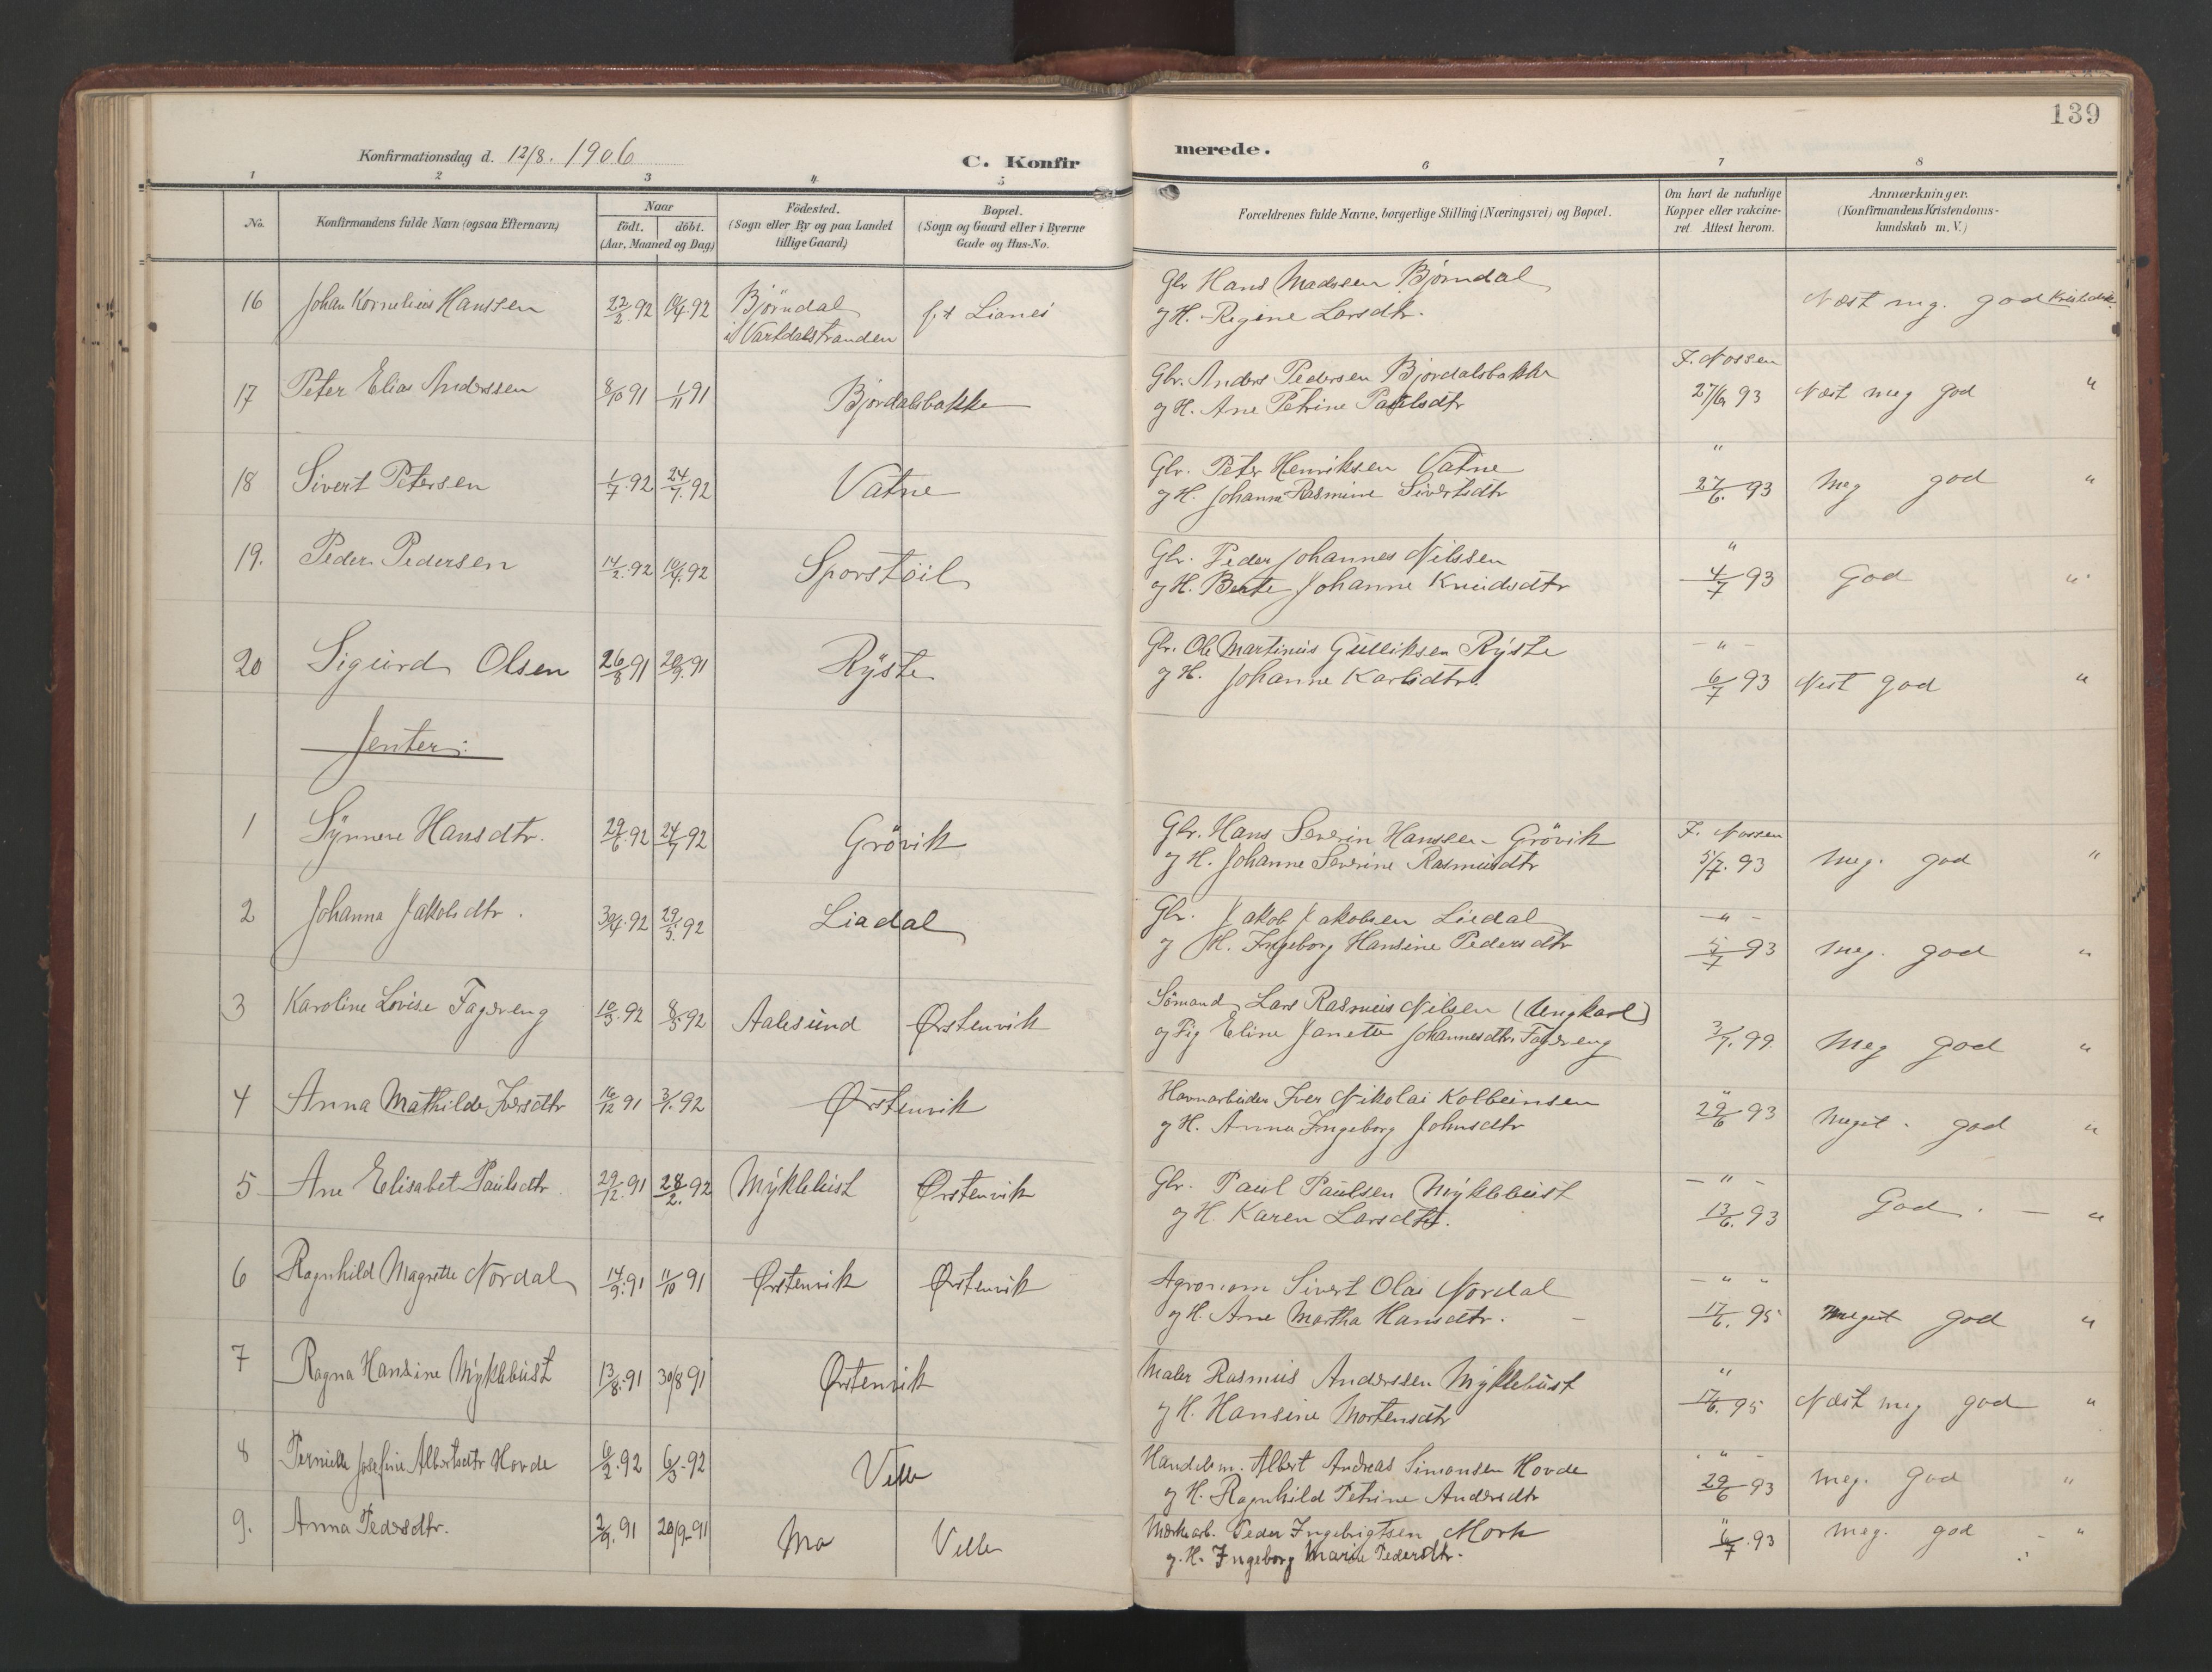 139
Konfirmationsdag d. 12/8. 1906
C. Konfirmerede.
1 2 3 4 5 6 7 8
No.
Konfirmandens fulde Navn (ogsaa Efternavn)
Naar
födt. döbt.
(Aar, Maaned og Dag)
Födested.
(Sogn eller By og paa Landet
tillige Gaard)
Bopæl.
(Sogn og Gaard eller i Byerne
Gade og Hus-No.
Forældrenes fulde Navne, borgerlige Stilling (Næringsvei) og Bopæl.
Om havt de naturlige
Kopper eller vakcine-
ret. Attest herom.
Anmærkninger.
(Konfirmandens Kristendoms-
kundskab m. V.)
16 Johan Kornelius Hanssen 22/2.92 10/4.92 Björndal
i Vartdalstranden
Gbr Hans Madssen Björndal
og H. Regine Larsdtr.
Næst mg. god
17 Peter Elias Anderssen 8/10 91 1/11 91 Bjordalsbakke
Gbr. Anders Pedersen Bjordalsbakke
og H. Ane Petrine Paulsdtr
J. Nossen
27/6 93 Næst meg god "
18 Sivert Petersen 1/7.92 24/7.92 Vatne
Gbr. Peter Henriksen Vatne
og H. Johanne Rasmine Sivertsdtr
"
27/6. 93 Meg god "
19. Peder Pedersen 14/2.92 10/4.92 Sporstöil
Gbr. Peder Johannes Nilssen
og H. Berte Johanne Knudsdtr
"
4/7 93 God "
20 Sigurd Olsen 26/8 91 20/9.91 Ryste
Gbr. Ole Martinus Gulliksen Ryste
og H. Johanne Karlsdtr.
- " -
6/7 93 Nest god "
Jenter:
1 Synnere Hansdtr. 29/6 92 24/7 92 Grövik
Gbr. Hans Severin Hanssen Grövik
og H. Johanne Severine Rasmusdtr
J. Nossen
5/7. 93 Meg. god "
2 Johanna Jakobsdtr. 30/4.92 29/5.92 Liadal
Gbr. Jakob Jakobsen Liadal
og H. Ingeborg Hansine Pedersdtr
- " -
5/7 93 Meg. god "
3 Karoline Lovise Fagereng 10/3.92 8/5 92 Aalesund Ørstenvik
Sömand Lars Rasmus Nilsen (Ungkarl)
og Pig Eline Janette Johannesdtr. Fagereng
3/7.99 Meg god "
4 Anna Mathilde Iversdtr 16/12 91 3/1.92 Ørstenvik
Havnarbeider Iver Nikolai Kolbeinsen
og H. Anna Ingeborg Johnsdtr
"
29/6 93 Meget god "
5 Ane Elisabet Paulsdtr 29/12.91 28/2.92 Myklebust Ørstenvik
Gbr. Paul Paulsen Myklebust
og H. Karen Larsdtr.
- " -
13/6.93 God. - "
6 Ragnhild Magrette Nordal 14/9.91 11/10 91 Ørstenvik Ørstenvik
Agronom Sivert Olai Nordal
og H. Ane Martha Hansdtr. -
- " "
17/6. 95 Meget god "
7 Ragna Hansine Myklebust 13/8.91 30/8 91 Ørstenvik
Maler Rasmus Anderssen Myklebust
og H. Hansine Mortensdtr
"
17/6. 95 Næst meg god "
8 Pernille Josefine Albertsdtr Hovde 6/2.92 6/3.92 Velle
Handelsm. Albert Andreas Simonsen Hovde
og H. Ragnhild Petrine Andersdtr
"
29/6 93 meg. god "
9. Anna Pedersdtr. 2/9. 91 20/9-91 Mo Velle
Peder Ingebrigtsen Mork
og H. Ingeborg Marie Pedersdtr.
"
6/7.93 Meg. god - "